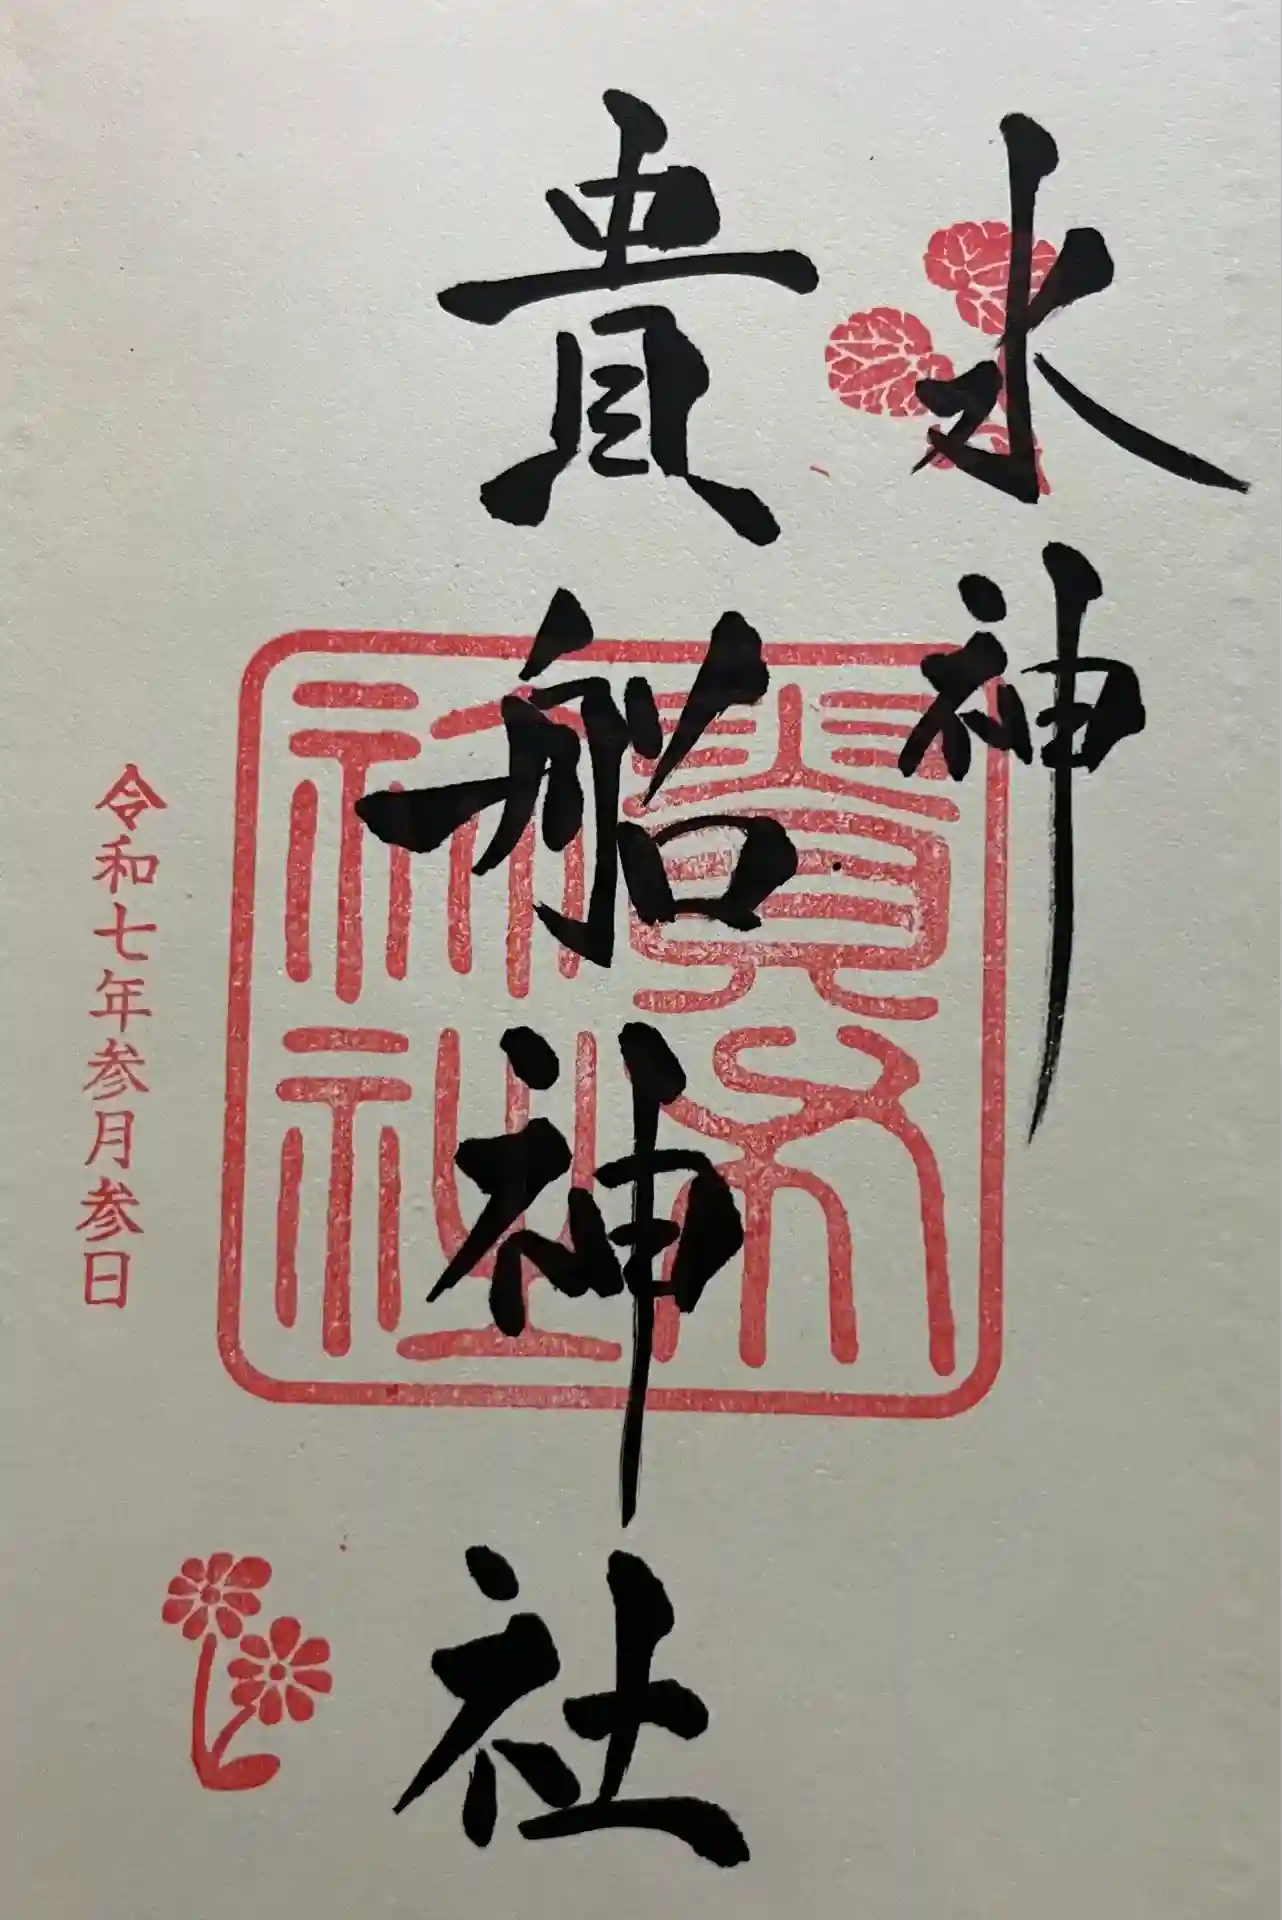 水神
貴船神社
貴布祢社
令和七年参月参日